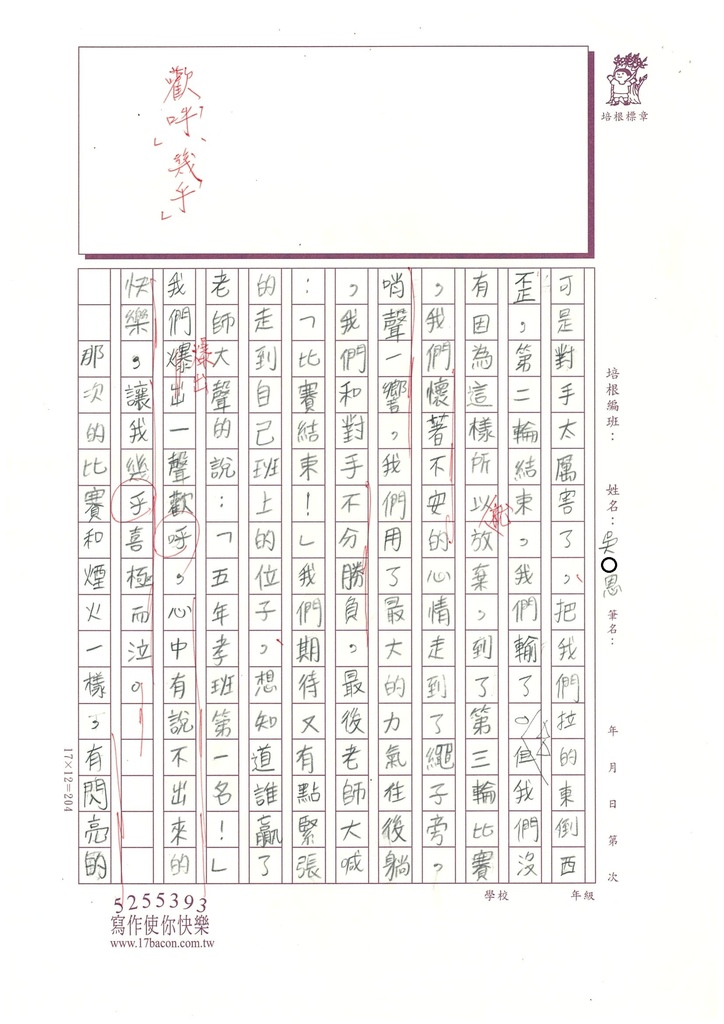 歡呼、幾乎
培根標章
培根編班：　姓名：吳○恩　筆名：　年　月　日　第　次
可是對手太厲害了。把我們拉的東倒西
歪，第二輪結束。我們輸了。但我們沒
有因為這樣所以放棄，到了第三輪比賽
，我們懷著不安的心情走到了繩子旁。
哨聲一響，我們用了最大的力氣往後躺
，我們和對手不分勝負。最後老師大喊
：「比賽結束！」我們期待又有點緊張
的走到自己班上的位子。想知道誰贏了
老師大聲的說：「五年孝班第一名！」
爆出
我們爆出一聲歡呼，心中有說不出來的
快樂，讓我幾乎喜極而泣。
那次的比賽和煙火一樣，有閃亮的
17×12=204
學校　年級
5255393
寫作使你快樂
www.17bacon.com.tw